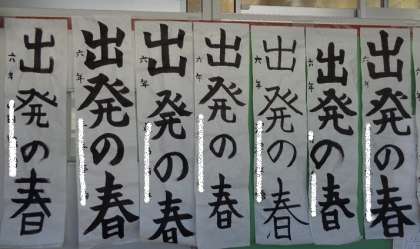 出発の春
六年
出発の春
六年
出発の春
六年
出発の春
六年
出発の春
六年
出発の春
六年
出発の春
六年